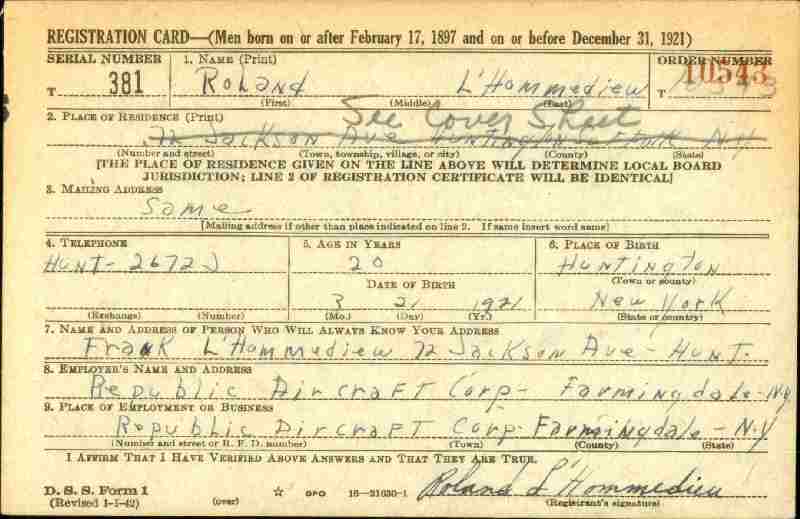 REGISTRATION CARD—(Men born on or after February 17, 1897 and on or before December 31, 1921)
SERIAL NUMBER 1. NAME (Print) ORDER NUMBER
T 381 Roland L'Hommedieu T 10543
(First) (Middle) (Last)
See Cover Sheet
2. PLACE OF RESIDENCE (Print)
72 Jackson Ave Huntington Suffolk N.Y.
(Number and street) (Town, township, village, or city) (County) (State)
[THE PLACE OF RESIDENCE GIVEN ON THE LINE ABOVE WILL DETERMINE LOCAL BOARD
JURISDICTION; LINE 2 OF REGISTRATION CERTIFICATE WILL BE IDENTICAL]
3. MAILING ADDRESS
Same
[Mailing address if other than place indicated on line 2. If same insert word same]
4. TELEPHONE 5. AGE IN YEARS 6. PLACE OF BIRTH
Hunt-2672J 20 Huntington
(Town or county)
DATE OF BIRTH
3 21 1921 New York
(Exchange) (Number) (Mo.) (Day) (Yr.) (State or country)
7. NAME AND ADDRESS OF PERSON WHO WILL ALWAYS KNOW YOUR ADDRESS
Frank L'Hommedieu 72 Jackson Ave - Hunt.
8. EMPLOYER'S NAME AND ADDRESS
Republic Aircraft Corp - Farmingdale - N.Y
9. PLACE OF EMPLOYMENT OR BUSINESS
Republic Aircraft Corp Farmingdale - N.Y
(Number and street or R. F. D. number) (Town) (County) (State)
I AFFIRM THAT I HAVE VERIFIED ABOVE ANSWERS AND THAT THEY ARE TRUE.
Roland L'Hommedieu
D. S. S. Form 1
(Revised 1-1-42) (over) ☆ GPO 16—21630-1 (Registrant's signature)